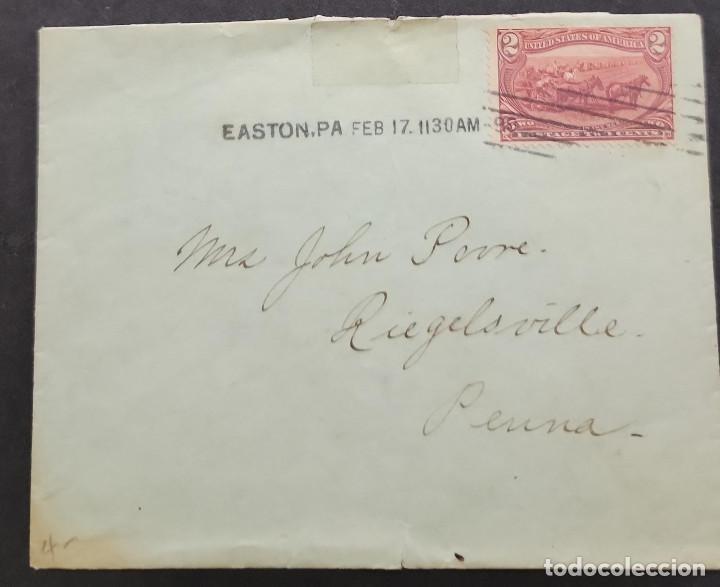 2 UNITED STATES OF AMERICA 2
EASTON, PA FEB 17. 1130AM
POSTAGE TWO CENTS
Mrs John Poore.
Riegelsville.
Penna -
4
todocoleccion